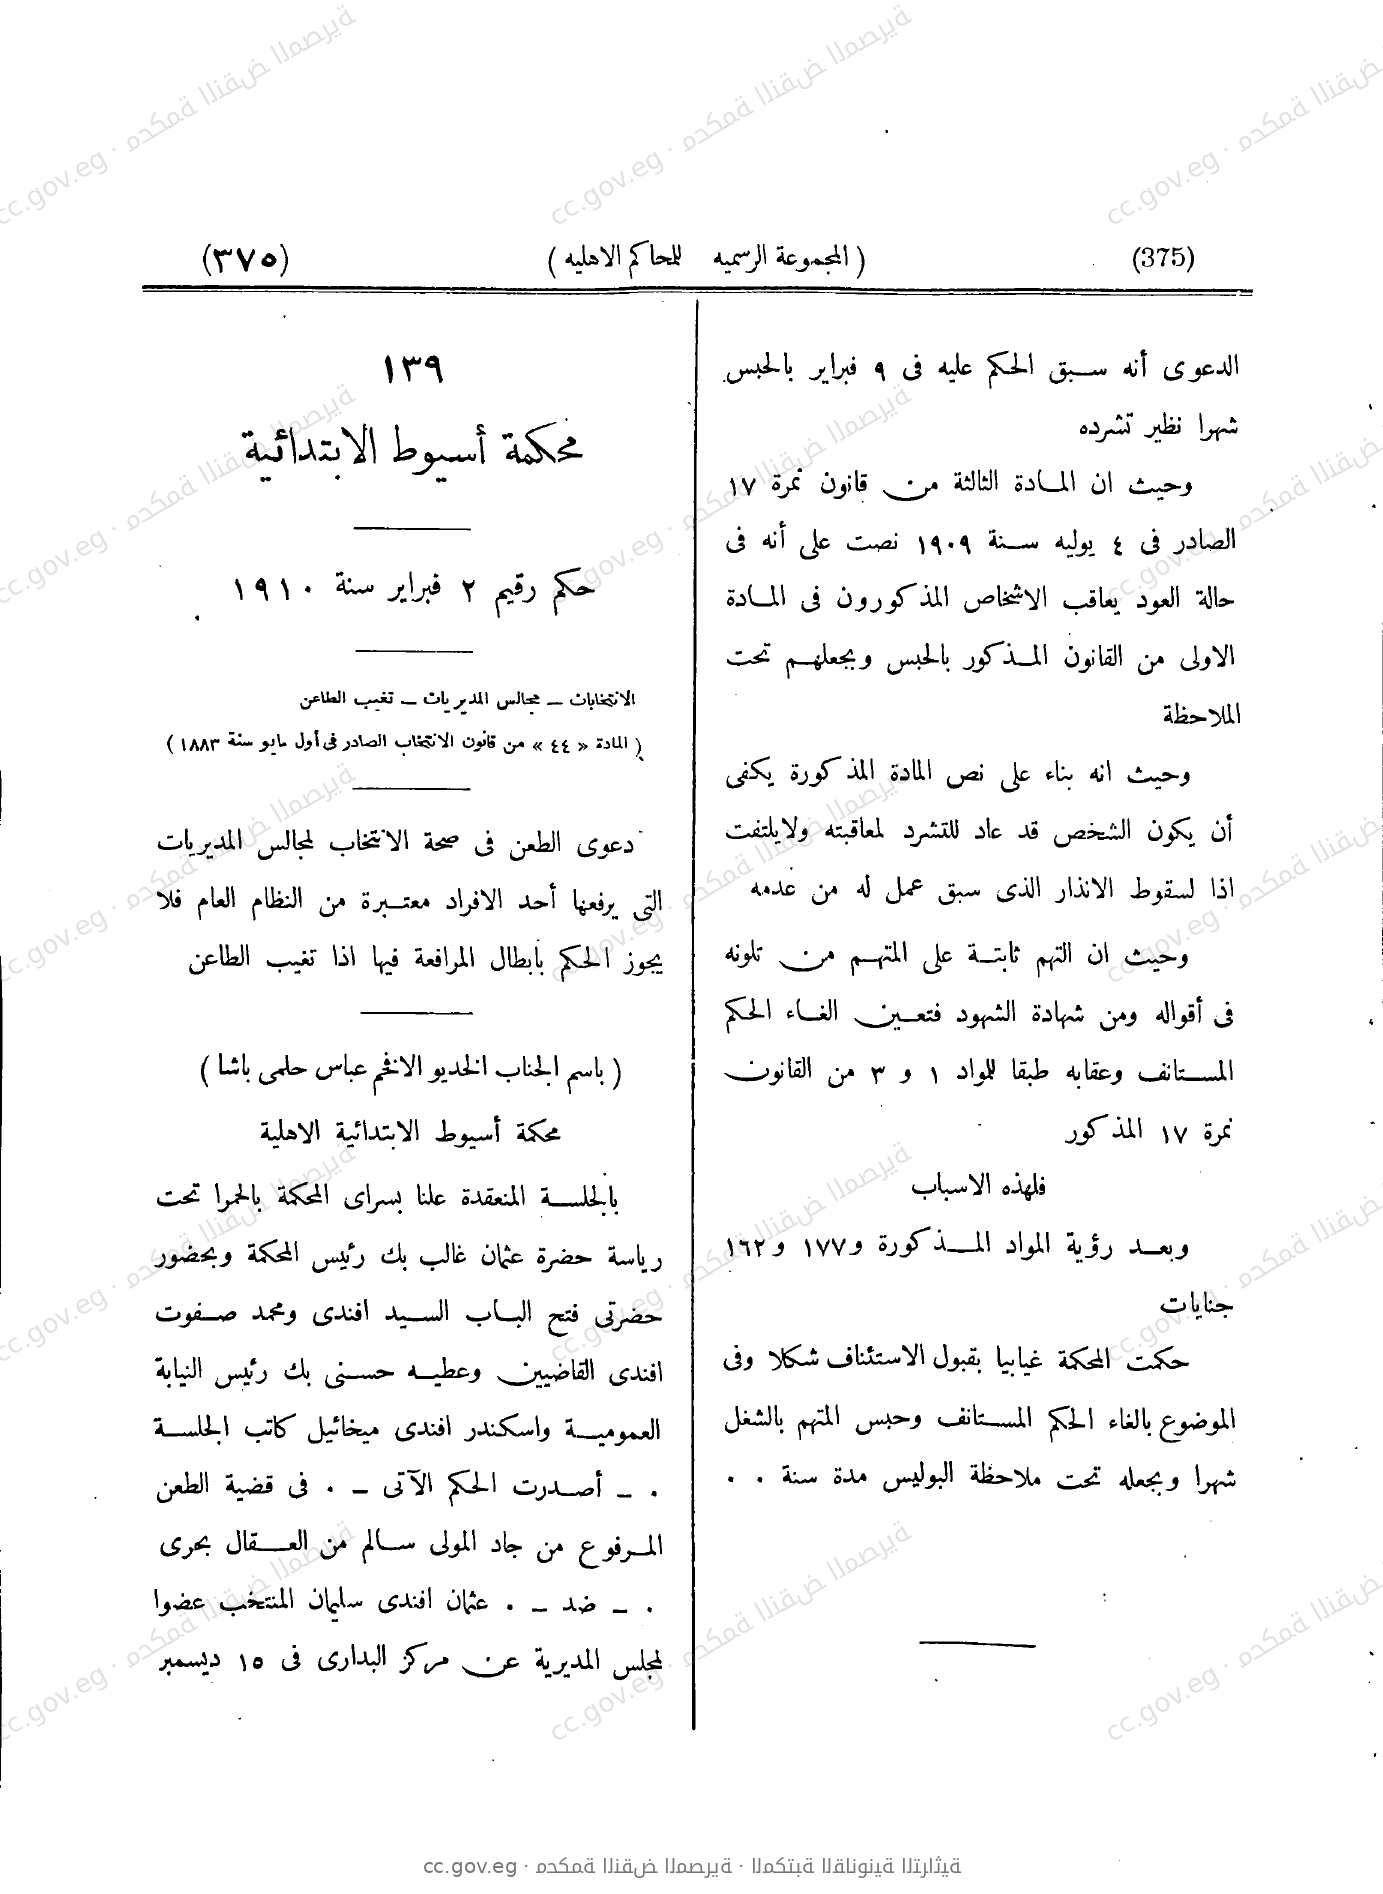 (375) ( المجموعة الرسميه للمحاكم الاهليه ) (٣٧٥)
الدعوى أنه سبق الحكم عليه فى ٩ فبراير بالحبس
شهرا نظير تشرده
وحيث ان المادة الثالثة من قانون نمرة ١٧
الصادر فى ٤ يوليه سنة ١٩٠٩ نصت على أنه فى
حالة العود يعاقب الاشخاص المذكورون فى المادة
الاولى من القانون المذكور بالحبس وبجعلهم تحت
الملاحظة
وحيث انه بناء على نص المادة المذكورة يكفى
أن يكون الشخص قد عاد للتشرد لمعاقبته ولايلتفت
اذا لسقوط الانذار الذى سبق عمل له من عدمه
وحيث ان التهم ثابتة على المتهم من تلونه
فى أقواله ومن شهادة الشهود فتعين الغاء الحكم
المستانف وعقابه طبقا للمواد ١ و ٣ من القانون
نمرة ١٧ المذكور
فلهذه الاسباب
وبعد رؤية المواد المذكورة و١٧٧ و١٦٢
جنايات
حكمت المحكمة غيابيا بقبول الاستئناف شكلا وفى
الموضوع بالغاء الحكم المستانف وحبس المتهم بالشغل
شهرا وبجعله تحت ملاحظة البوليس مدة سنة . .
١٣٩
محكمة أسيوط الابتدائية
حكم رقيم ٢ فبراير سنة ١٩١٠
الانتخابات – مجالس المديريات – تغيب الطاعن
( المادة « ٤٤ » من قانون الانتخاب الصادر فى أول مايو سنة ١٨٨٣ )
دعوى الطعن فى صحة الانتخاب لمجالس المديريات
التى يرفعها أحد الافراد معتبرة من النظام العام فلا
يجوز الحكم بابطال المرافعة فيها اذا تغيب الطاعن
( باسم الجناب الخديو الافخم عباس حلمى باشا )
محكمة أسيوط الابتدائية الاهلية
بالجلسة المنعقدة علنا بسراى المحكمة بالحمرا تحت
رياسة حضرة عثمان غالب بك رئيس المحكمة وبحضور
حضرتى فتح الباب السيد افندى ومحمد صفوت
افندى القاضيين وعطيه حسنى بك رئيس النيابة
العمومية واسكندر افندى ميخائيل كاتب الجلسة
. – أصدرت الحكم الآتى – . فى قضية الطعن
المرفوع من جاد المولى سالم من العقال بحرى
. – ضد – . عثمان افندى سليمان المنتخب عضوا
لمجلس المديرية عن مركز البدارى فى ١٥ ديسمبر
cc.gov.eg · محكمة النقض المصرية · المكتبة القانونية التراثية